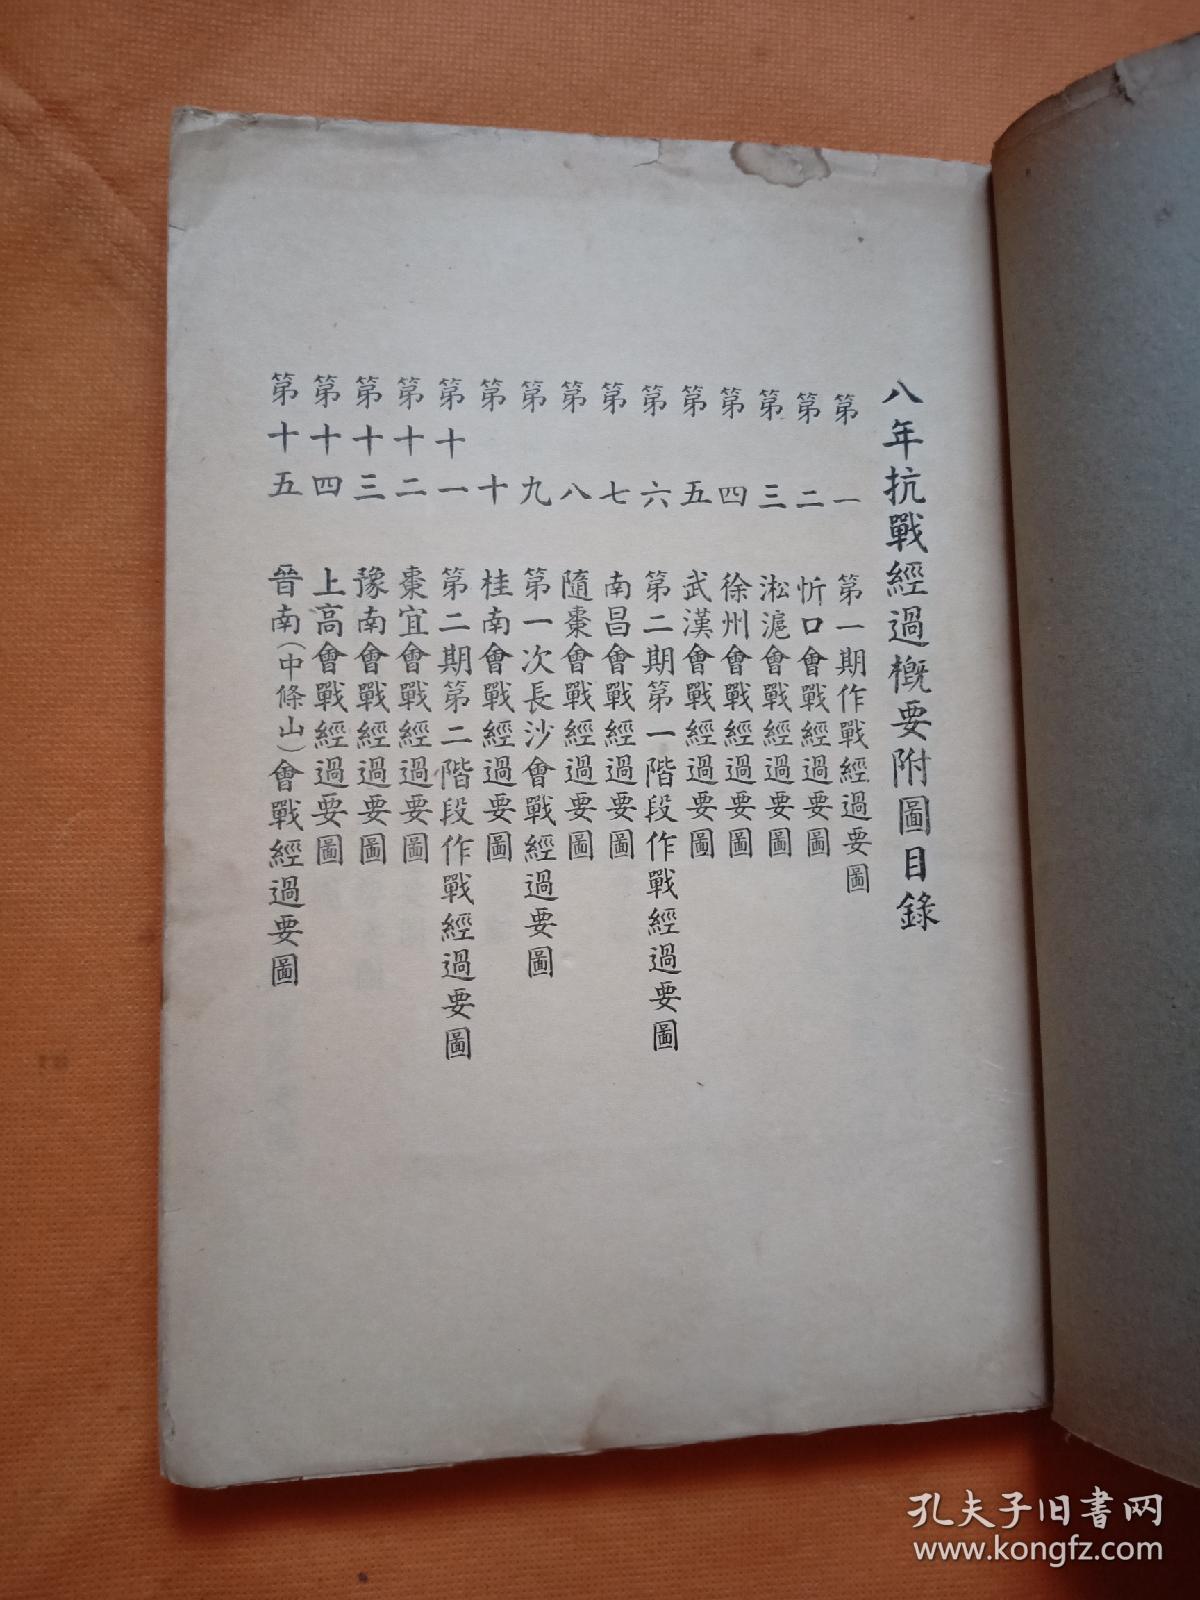 八年抗戰經過概要附圖目錄
第一 第一期作戰經過要圖
第二 忻口會戰經過要圖
第三 淞滬會戰經過要圖
第四 徐州會戰經過要圖
第五 武漢會戰經過要圖
第六 第二期第一階段作戰經過要圖
第七 南昌會戰經過要圖
第八 隨棗會戰經過要圖
第九 第一次長沙會戰經過要圖
第十 桂南會戰經過要圖
第十一 第二期第二階段作戰經過要圖
第十二 棗宜會戰經過要圖
第十三 豫南會戰經過要圖
第十四 上高會戰經過要圖
第十五 晉南(中條山)會戰經過要圖
孔夫子旧書网
www.kongfz.com